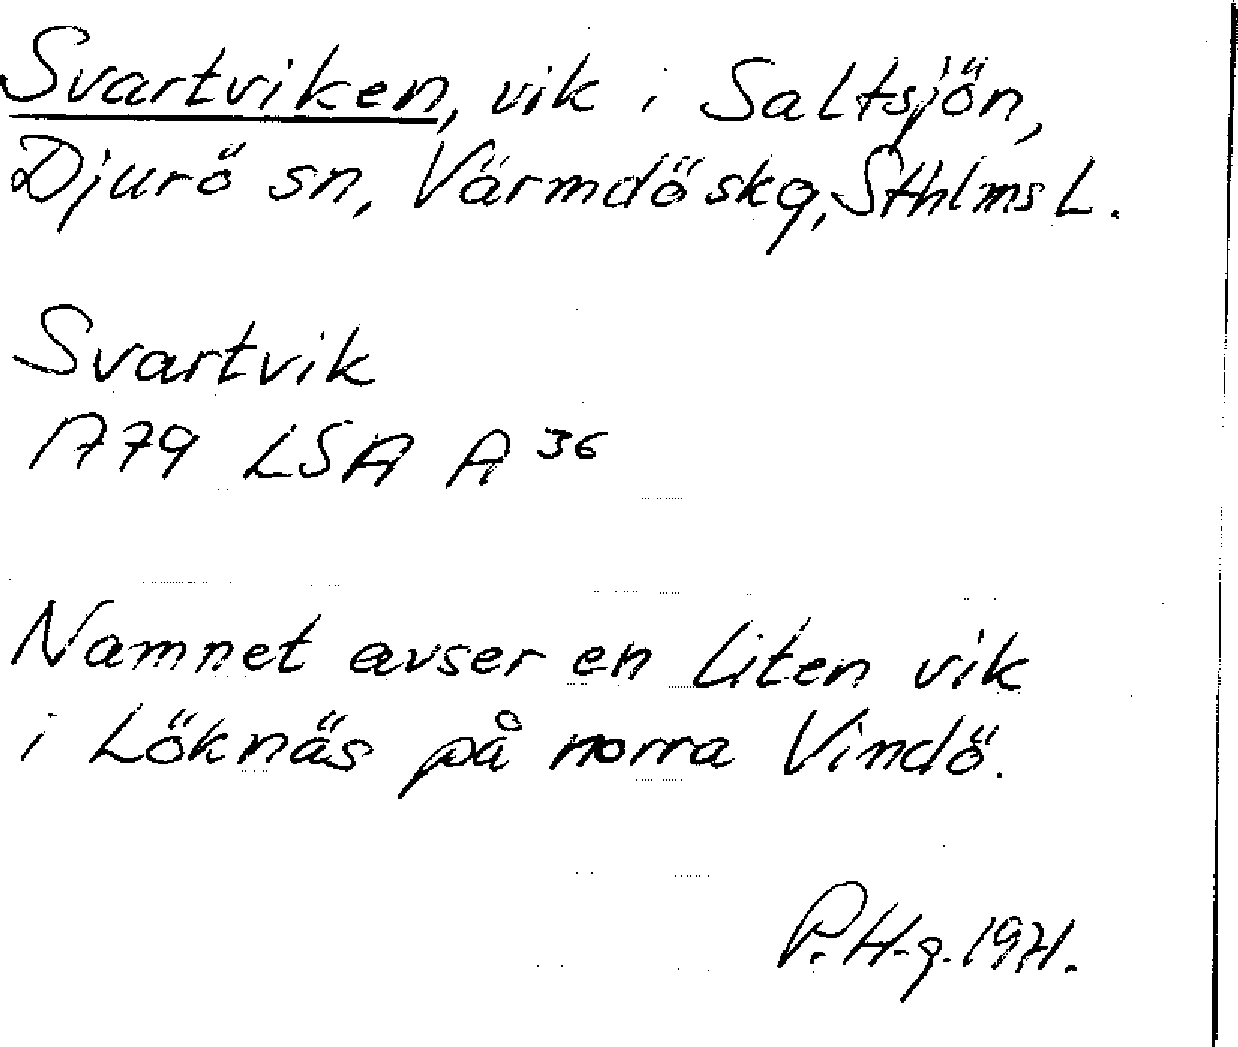 Svartviken, vik i Saltsjön,
Djurö sn, Värmdö skg, Sthlms L.
Svartvik
1779 LSA A 36
Namnet avser en liten vik
i Löknäs på norra Vindö.
P. H-g. 1971.